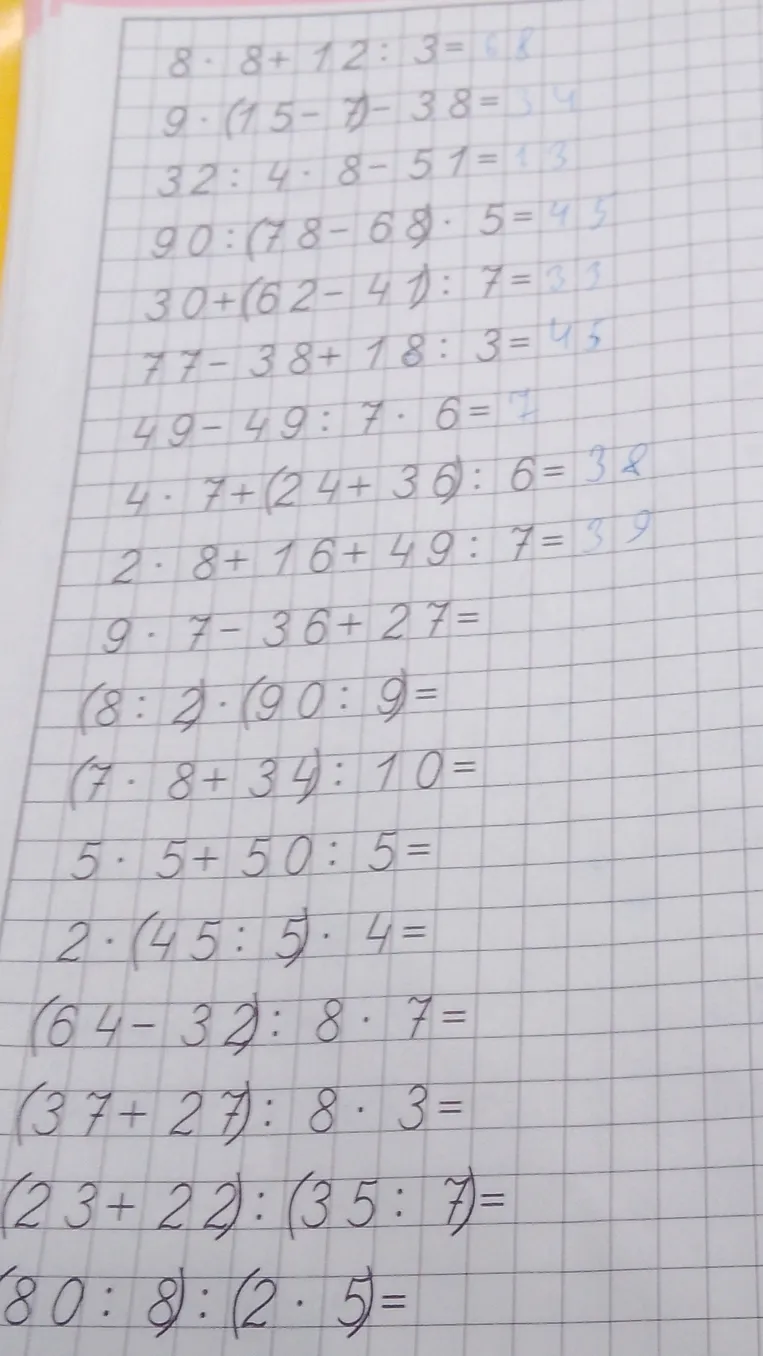 8 · 8 + 12 : 3 = 68
9 · (15 - 7) - 38 = 34
32 : 4 · 8 - 51 = 13
90 : (78 - 68) · 5 = 45
30 + (62 - 41) : 7 = 33
77 - 38 + 18 : 3 = 45
49 - 49 : 7 · 6 = 7
4 · 7 + (24 + 36) : 6 = 38
2 · 8 + 16 + 49 : 7 = 39
9 · 7 - 36 + 27 =
(8 : 2) · (90 : 9) =
(7 · 8 + 34) : 10 =
5 · 5 + 50 : 5 =
2 · (45 : 5) · 4 =
(64 - 32) : 8 · 7 =
(37 + 27) : 8 · 3 =
(23 + 22) : (35 : 7) =
(80 : 8) : (2 · 5) =